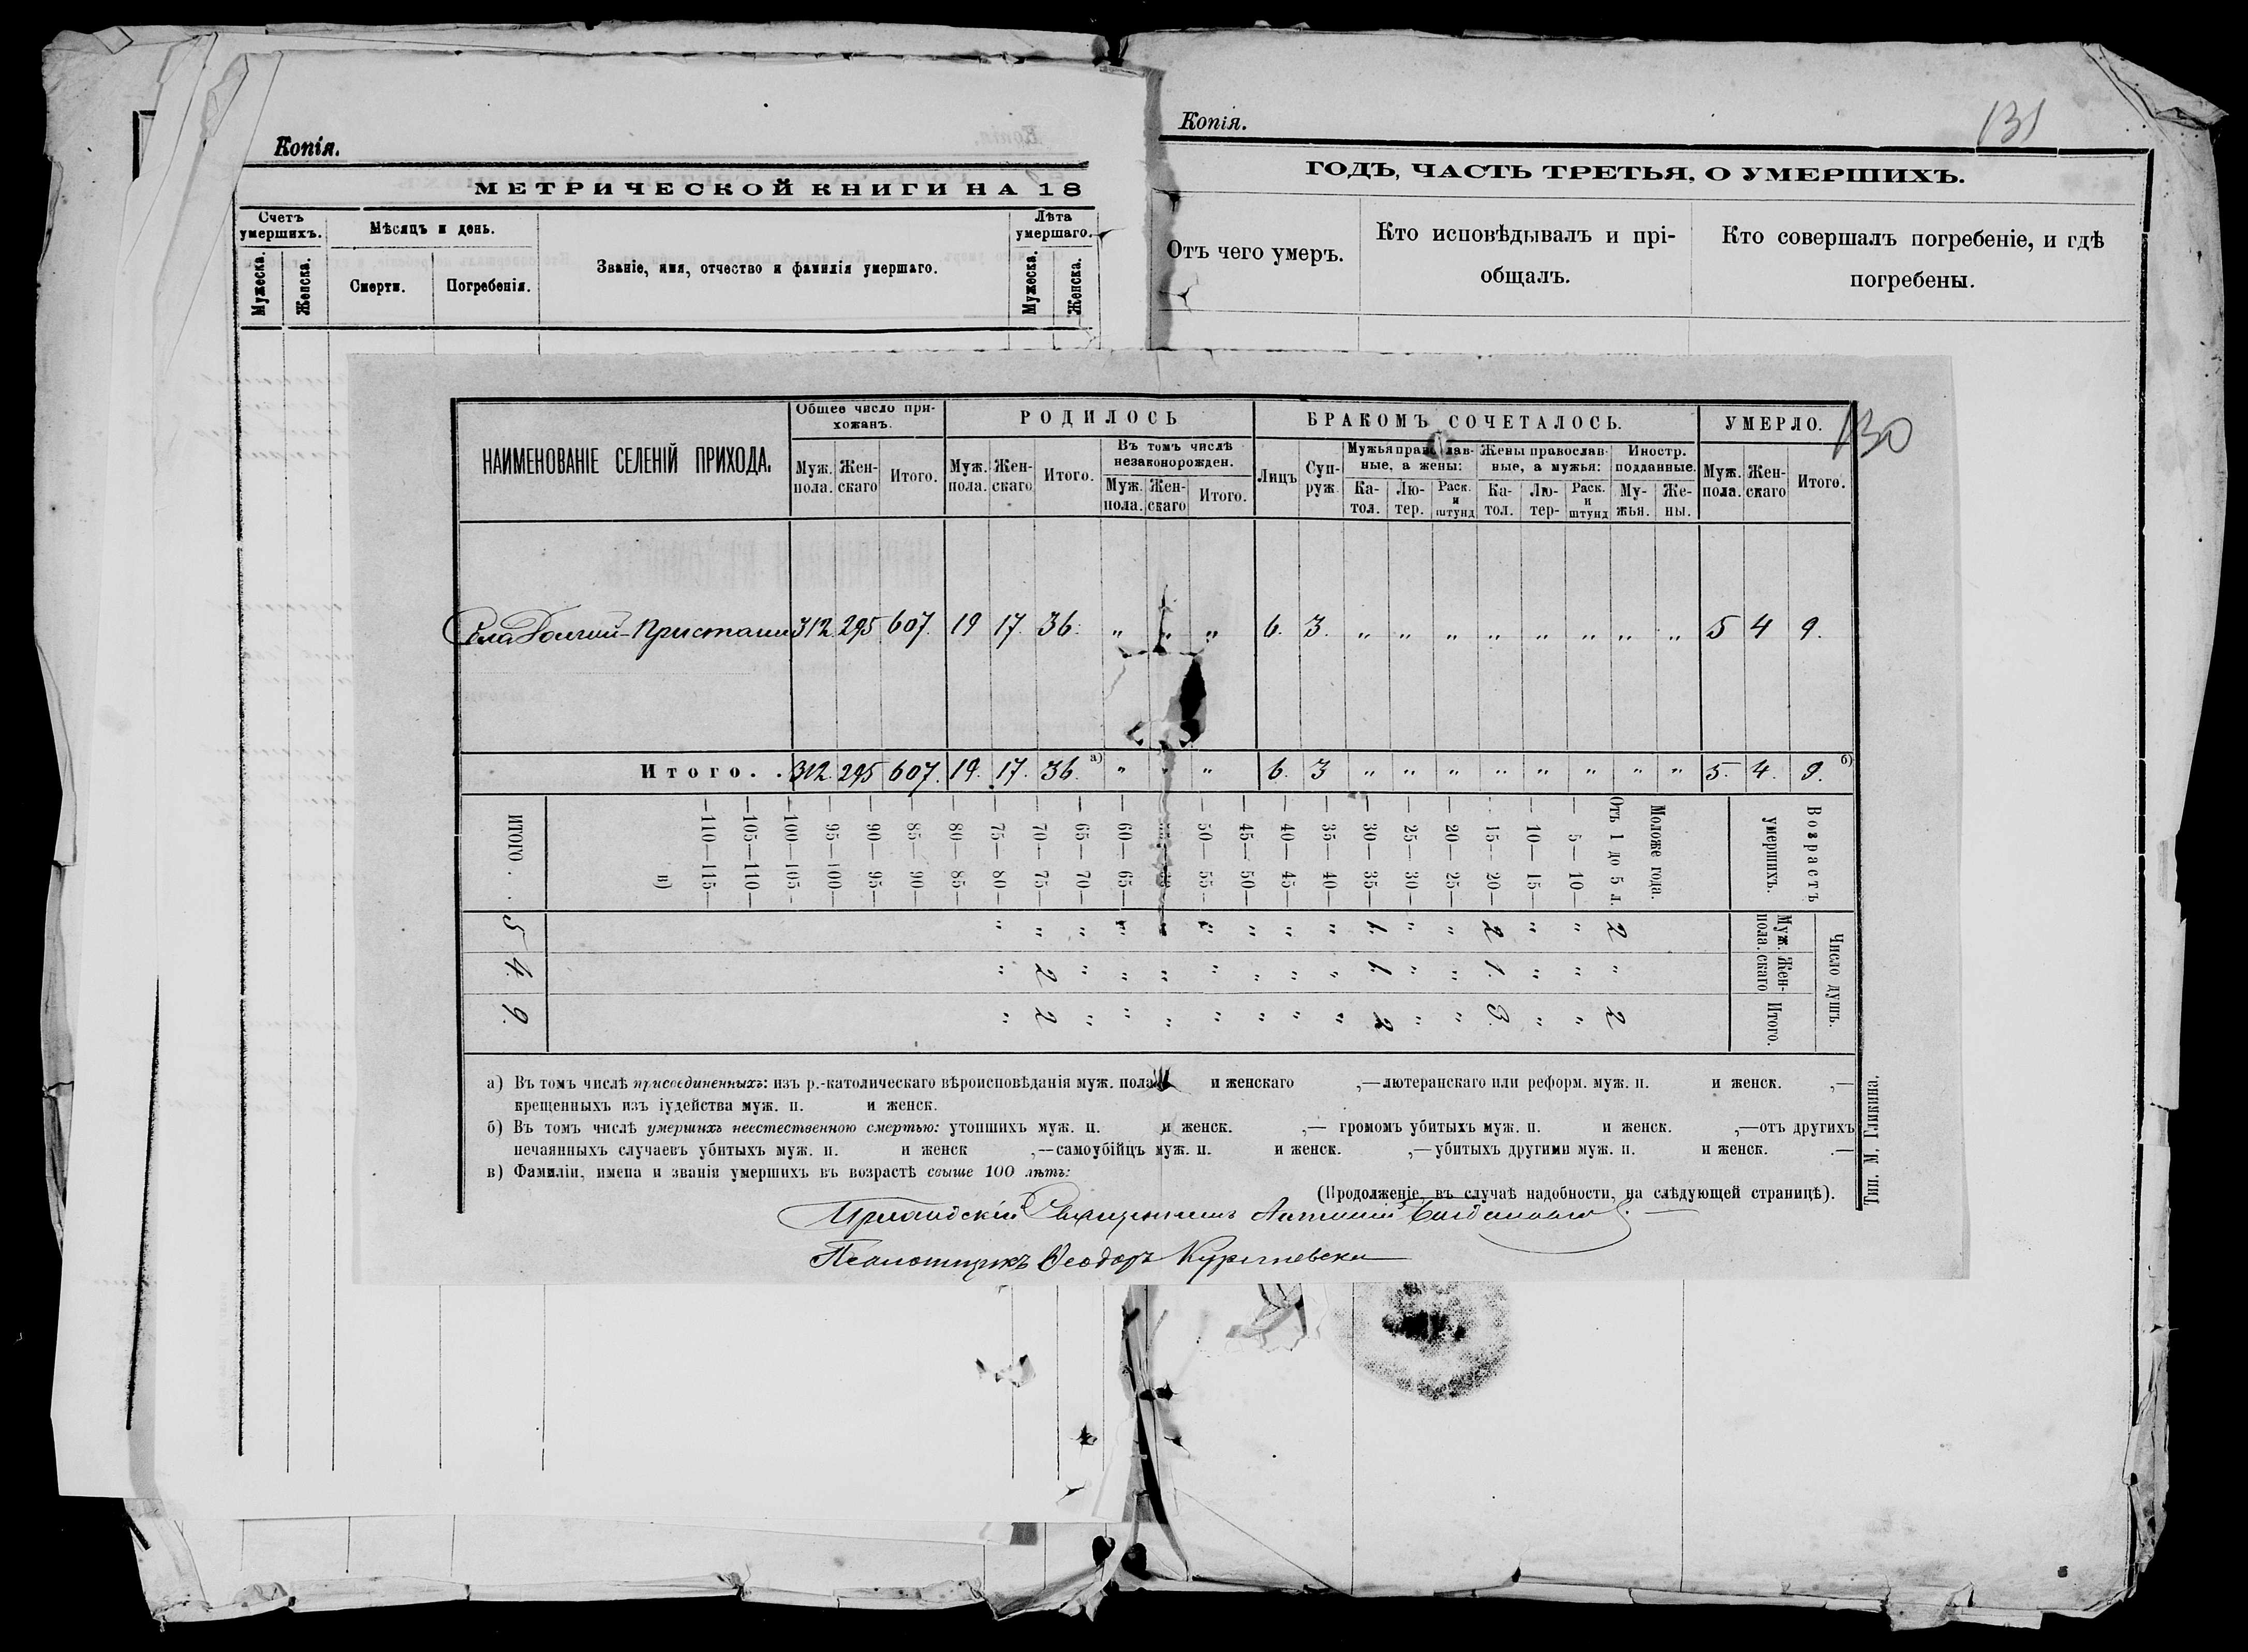 Копія.
МЕТРИЧЕСКОЙ КНИГИ НА 18
Счетъ умершихъ.
Мужеска.
Женска.
Мѣсяцъ и день.
Смерти.
Погребенія.
Званіе, имя, отчество и фамилія умершаго.
Лѣта умершаго.
Мужеска.
Женска.
Копія.
131
ГОДЪ, ЧАСТЬ ТРЕТЬЯ, О УМЕРШИХЪ.
Отъ чего умеръ.
Кто исповѣдывалъ и прі-
общалъ.
Кто совершалъ погребеніе, и гдѣ
погребены.
130
НАИМЕНОВАНІЕ СЕЛЕНІЙ ПРИХОДА.
Общее число при-
хожанъ.
Муж. пола.
Жен-
скаго
Итого.
РОДИЛОСЬ
Муж. пола.
Жен-
скаго
Итого.
Въ томъ числѣ
незаконорожден.
Муж. пола.
Жен-
скаго
Итого.
БРАКОМЪ СОЧЕТАЛОСЬ.
Лицъ
Суп-
руж.
Мужья православ-
ные, а жены:
Ка-
тол.
Лю-
тер.
Раск.
и
штунд
Жены православ-
ные, а мужья:
Ка-
тол.
Лю-
тер-
Раск.
и
штунд
Иностр.
подданные.
Му-
жья.
Же-
ны.
УМЕРЛО.
Муж. пола.
Жен-
скаго
Итого.
Села Голой-Пристани 312 295 607. 19 17. 36. " " " 6. 3. " " " " " " " " 5 4 9.
Итого. . 312. 295 607. 19. 17. 36. а) " " " 6. 3 " " " " " " " " 5. 4. 9. б)
Возрастъ
умершихъ.
Число душъ.
Муж. пола.
Жен-
скаго
Итого.
Моложе года.
Отъ 1 до 5 л. 2 " 2
— 5 — 10 — " " "
— 10 — 15 — " " "
15 — 20 — 2 1. 3.
— 20 — 25 — " " "
— 25 — 30 — " " "
— 30 — 35 — 1. 1. 2
— 35 — 40 — " " "
— 40 — 45 — " " "
— 45 — 50 — " " "
— 50 — 55 — " " "
" " "
— 60 — 65 — " " "
— 65 — 70 — " " "
— 70 — 75 — " 2 2
— 75 — 80 — " " "
— 80 — 85 —
— 85 — 90 —
— 90 — 95 —
— 95 — 100 —
— 100 — 105 -
— 105 — 110 —
— 110 — 115 —
в)
ИТОГО . . 5 4. 9.
а) Въ томъ числѣ присоединенныхъ: изъ р.-католическаго вѣроисповѣданія муж. пола и женскаго ,—лютеранскаго или реформ. муж. п. и женск. ,—
крещенныхъ изъ іудейства муж. п. и женск.
б) Въ томъ числѣ умершихъ неестественною смертью: утопшихъ муж. п. и женск. ,— громомъ убитыхъ муж. п. и женск. ,—отъ другихъ
нечаянныхъ случаевъ убитыхъ муж. п. и женск ,—самоубійцъ муж. п. и женск. ,—убитыхъ другими муж. п. и женск. .—
в) Фамиліи, имена и званія умершихъ въ возрастѣ свыше 100 лѣтъ:
(Продолженіе, въ случаѣ надобности, на слѣдующей страницѣ).
Тип. М. Гликина.
Священникъ Антоній
Псаломщикъ Ѳеодоръ